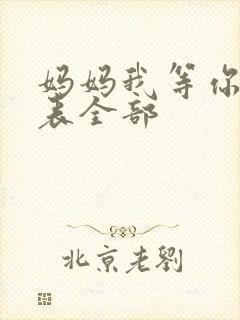 妈妈我等你
表全部
北京老劉